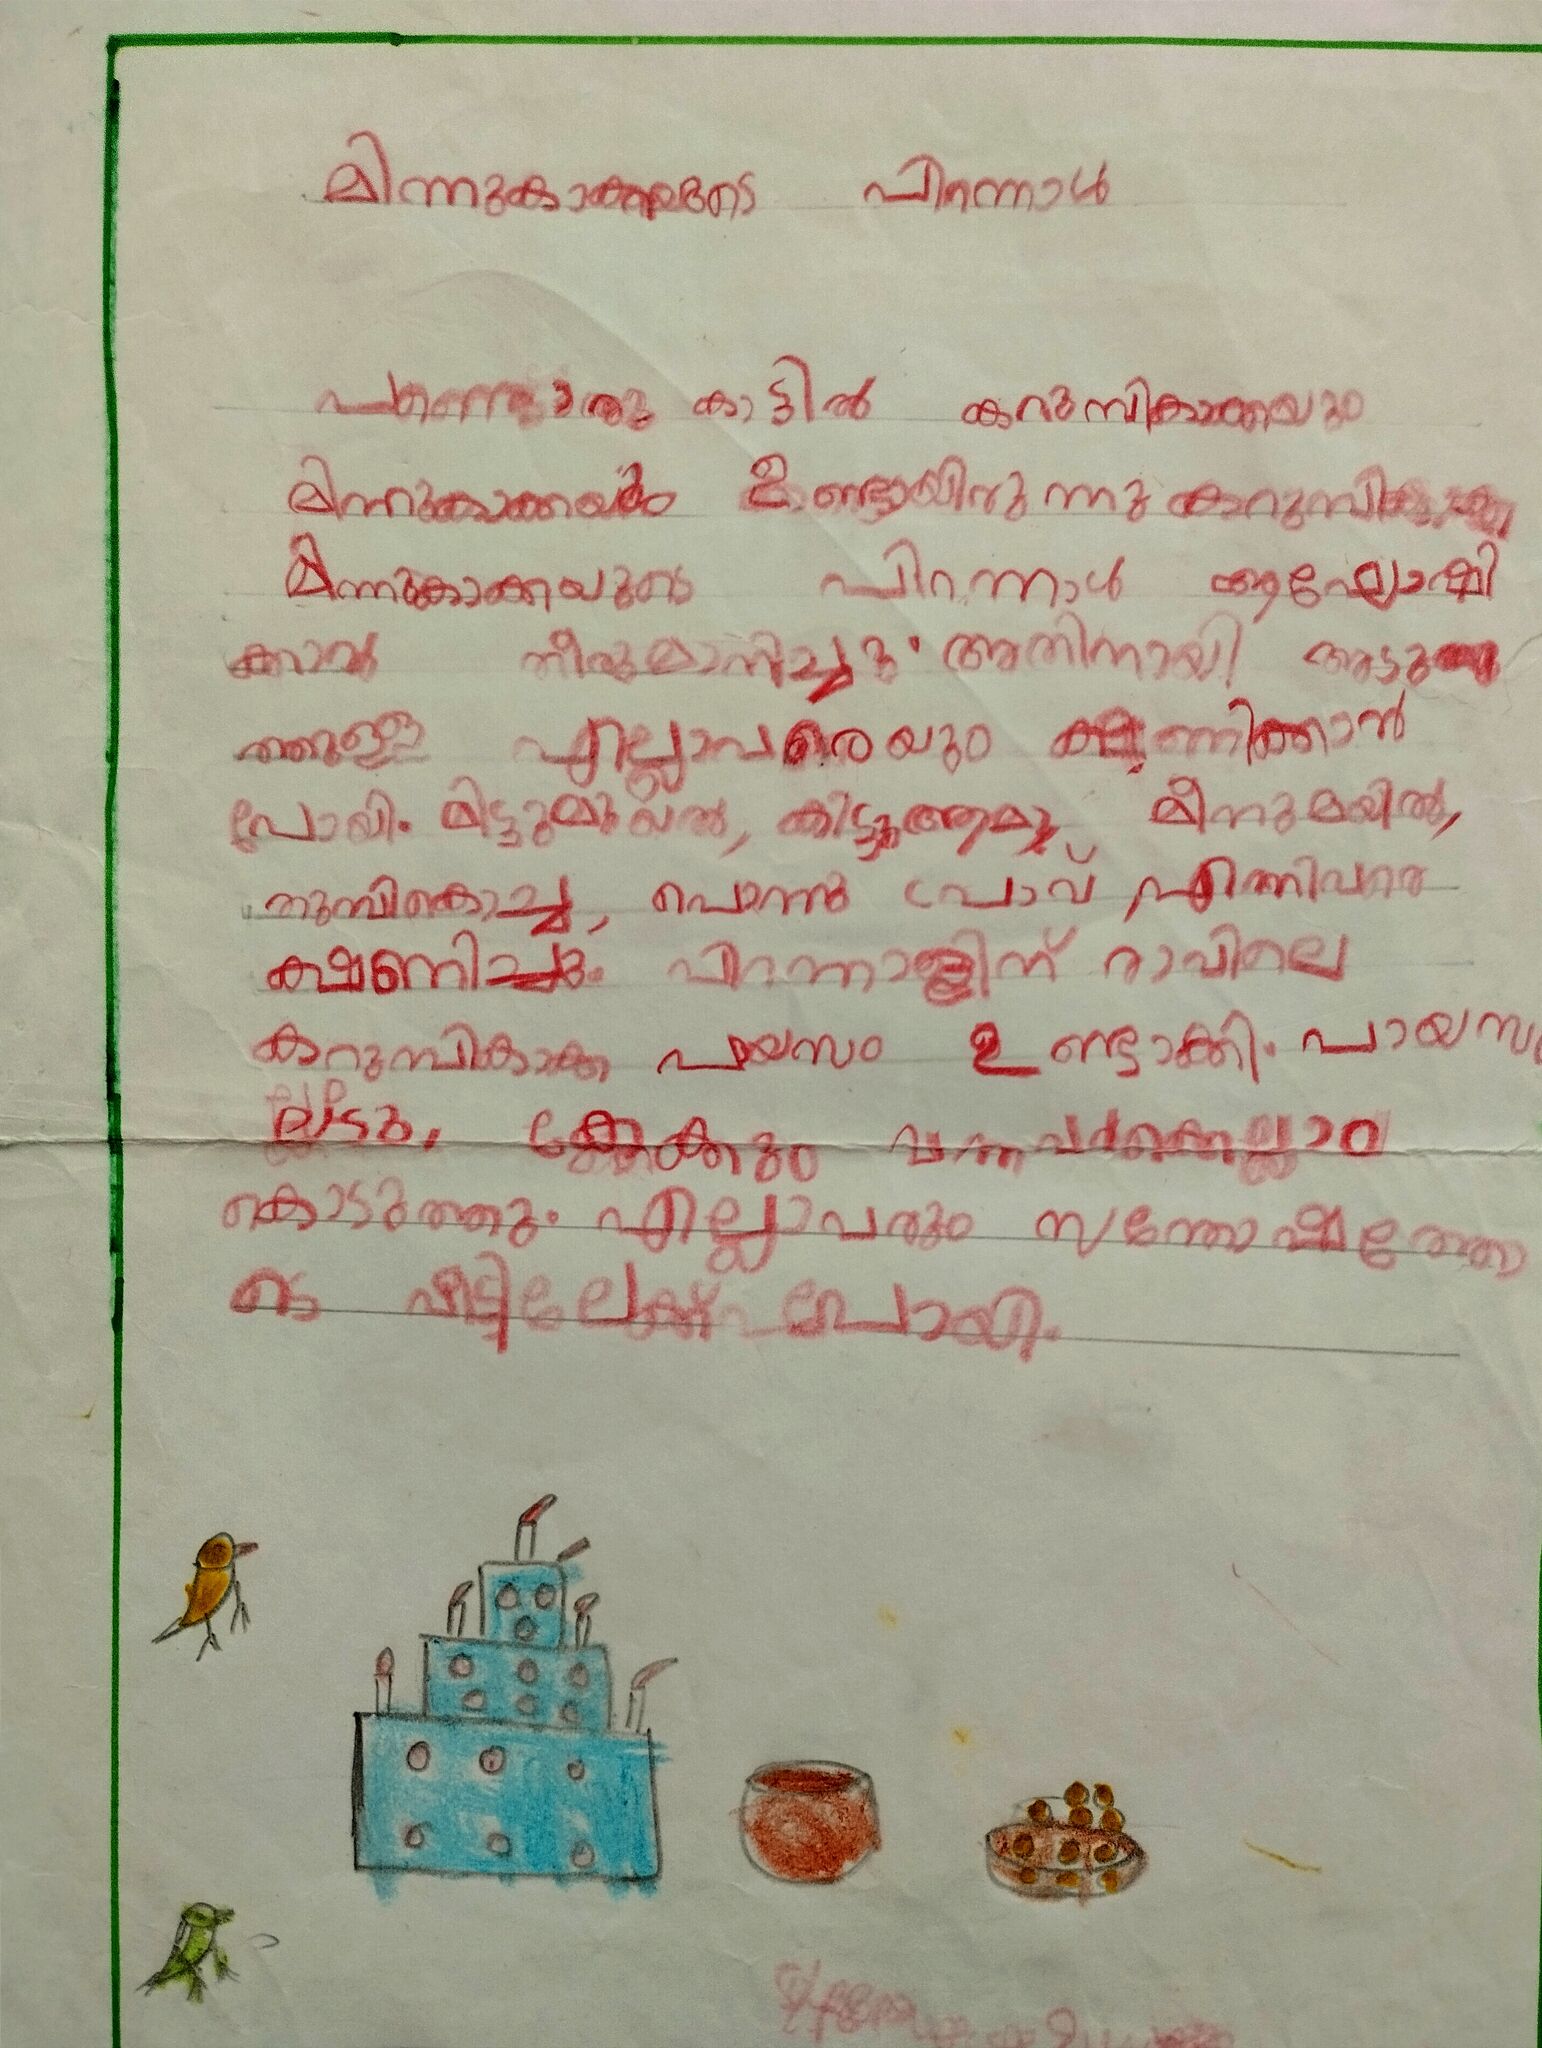 മിന്നുകാക്കയുടെ പിറന്നാൾ
പണ്ടൊരു കാട്ടിൽ കറുമ്പികാക്കയും
മിന്നുകാക്കയും ഉണ്ടായിരുന്നു കറുമ്പികാക്ക
മിന്നുകാക്കയുടെ പിറന്നാൾ ആഘോഷി
ക്കാൻ തീരുമാനിച്ചു. അതിനായി അടുത്തു
ത്തുള്ള എല്ലാവരെയും ക്ഷണിക്കാൻ
പോയി. മിട്ടുമുയൽ, കിട്ടുആമ, മീനുമയിൽ,
തുമ്പികൊച്ച, പൊന്നു പ്രാവ്, എന്നിവരെ
ക്ഷണിച്ചു. പിറന്നാളിന് രാവിലെ
കറുമ്പികാക്ക പയസം ഉണ്ടാക്കി. പായസം
ലഡു, കേക്കും വന്നവർക്കെല്ലാം
കൊടുത്തു. എല്ലാവരും സന്തോഷത്തോ
ടെ വീട്ടിലേക്ക് പോയി.